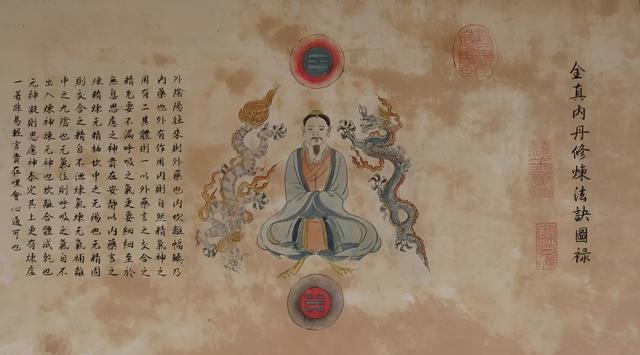 全真內丹修煉法訣圖禄
外陰陽往來則外藥也內坎離輻臻乃
內藥也外有作用內則自然精氣神之
用有二其體則一以外藥言之交合之
精先要不漏呼吸之氣更要細細至於
無息思慮之神貴在安靜以內藥言之
煉精煉元精抽坎中之元陽也元精固
則交合之精自不泄煉氣煉元氣補離
中之元陰也元氣住則呼吸之氣自不
出入煉神煉元神也坎離合體成乾也
元神凝則思慮神泰定其上更有煉虛
一著非易輕言貴在嘿會心通可也